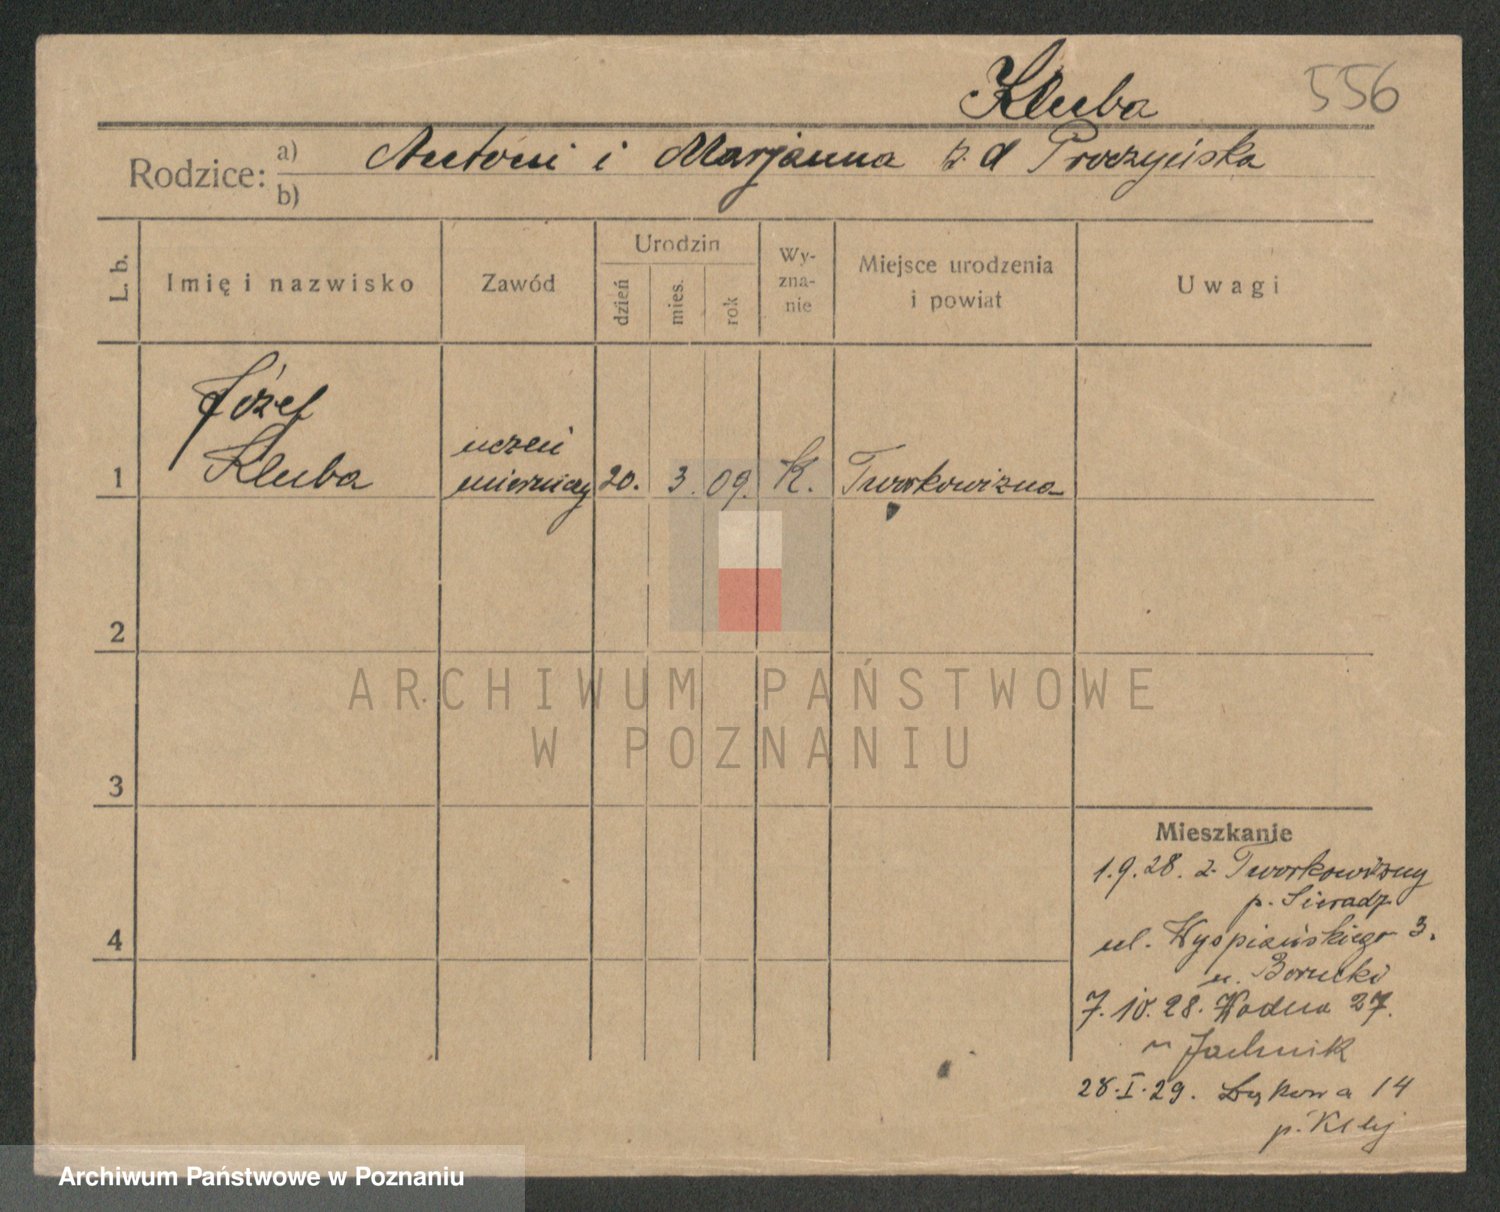 Kluba 556
Rodzice: a) Antoni i Marjanna z. d Proczyńska
b)
L. b. Imię i nazwisko Zawód Urodzin dzień mies. rok Wy-zna-nie Miejsce urodzenia i powiat Uwagi
Józef
Kluba
uczeń
mierniczy
1 20. 3. 09. K. Tworkowizna
2
ARCHIWUM PAŃSTWOWE
W POZNANIU
3
4
Mieszkanie
1.9.28. z Tworkowizny
p. Sieradz
ul. Wyspiańskiego 3.
u. Borucki
7.10.28. Wodna 27.
Jachnik
28.I.29. Łąkowa 14
p. Klej
Archiwum Państwowe w Poznaniu